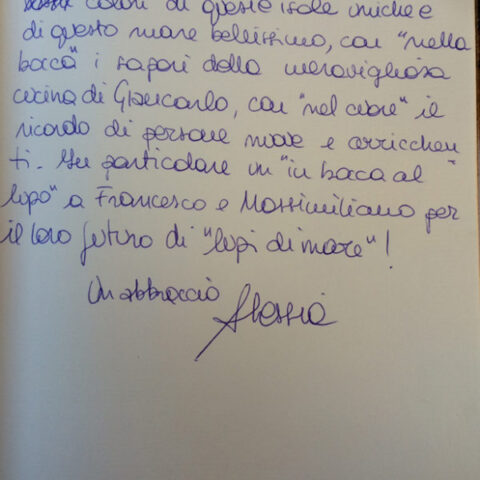 colori di queste isole uniche e
di questo mare bellissimo, con "nella
bocca" i sapori della meravigliosa
cucina di Giancarlo, con "nel cuore" il
ricordo di persone nuove e arricchen
ti. In particolare un "in bocca al
lupo" a Francesco e Massimiliano per
il loro futuro di "lupi di mare"!
Un abbraccio
Alessia